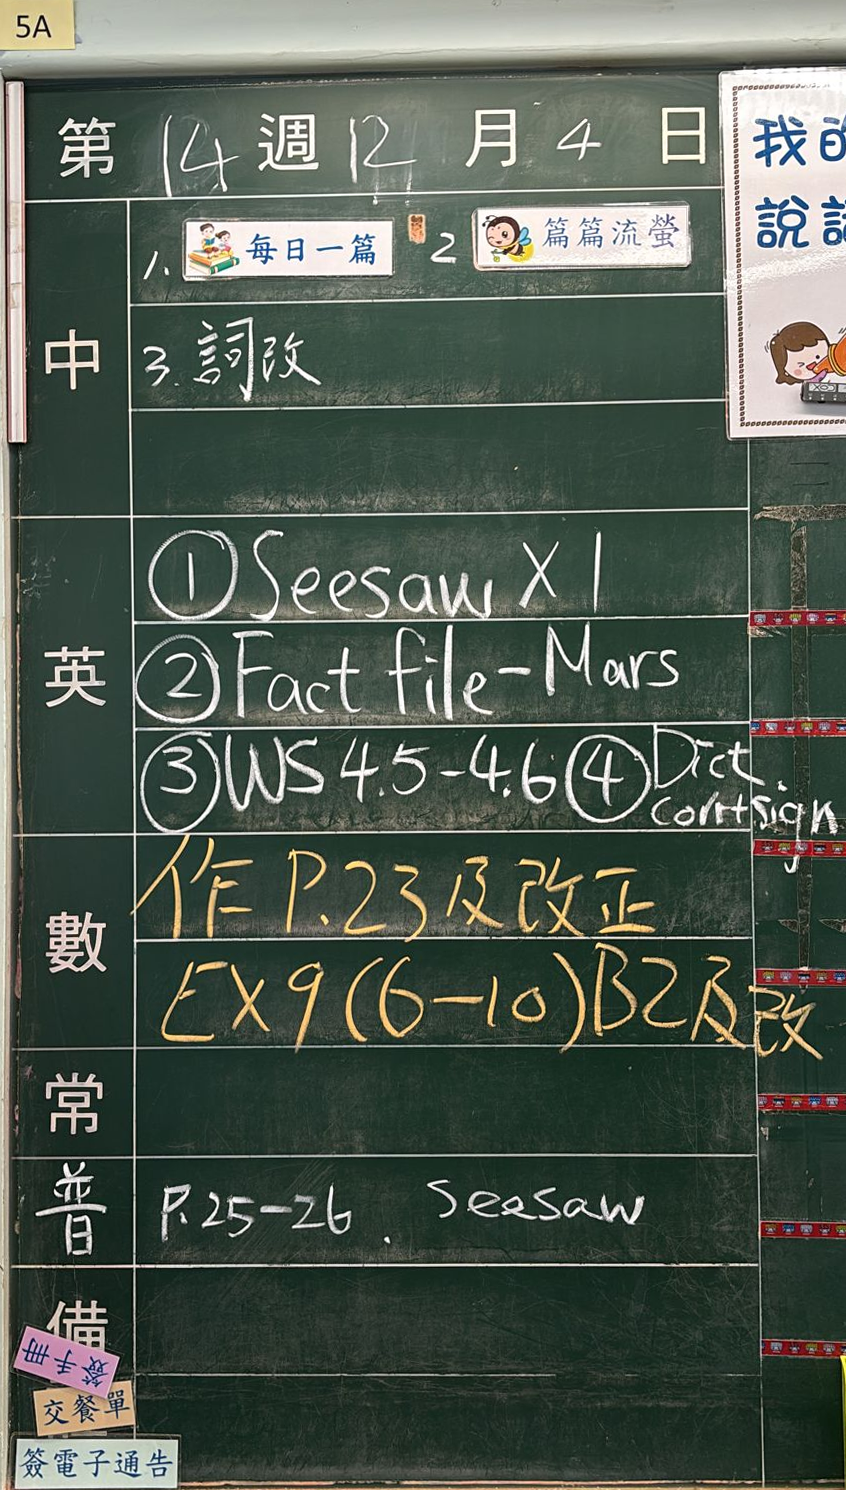 5A
第 14 週 12 月 4 日
中
1. 每日一篇 2 篇篇流螢
3. 詞改
英
① Seesaw X 1
② Fact file - Mars
③ WS 4.5 - 4.6 ④ Dict
corr+sign
數
作 P.23 及改正
EX 9 (6-10) B2 及改
常
普
P.25-26 . Seesaw
備
簽手冊
交餐單
簽電子通告
我的
說